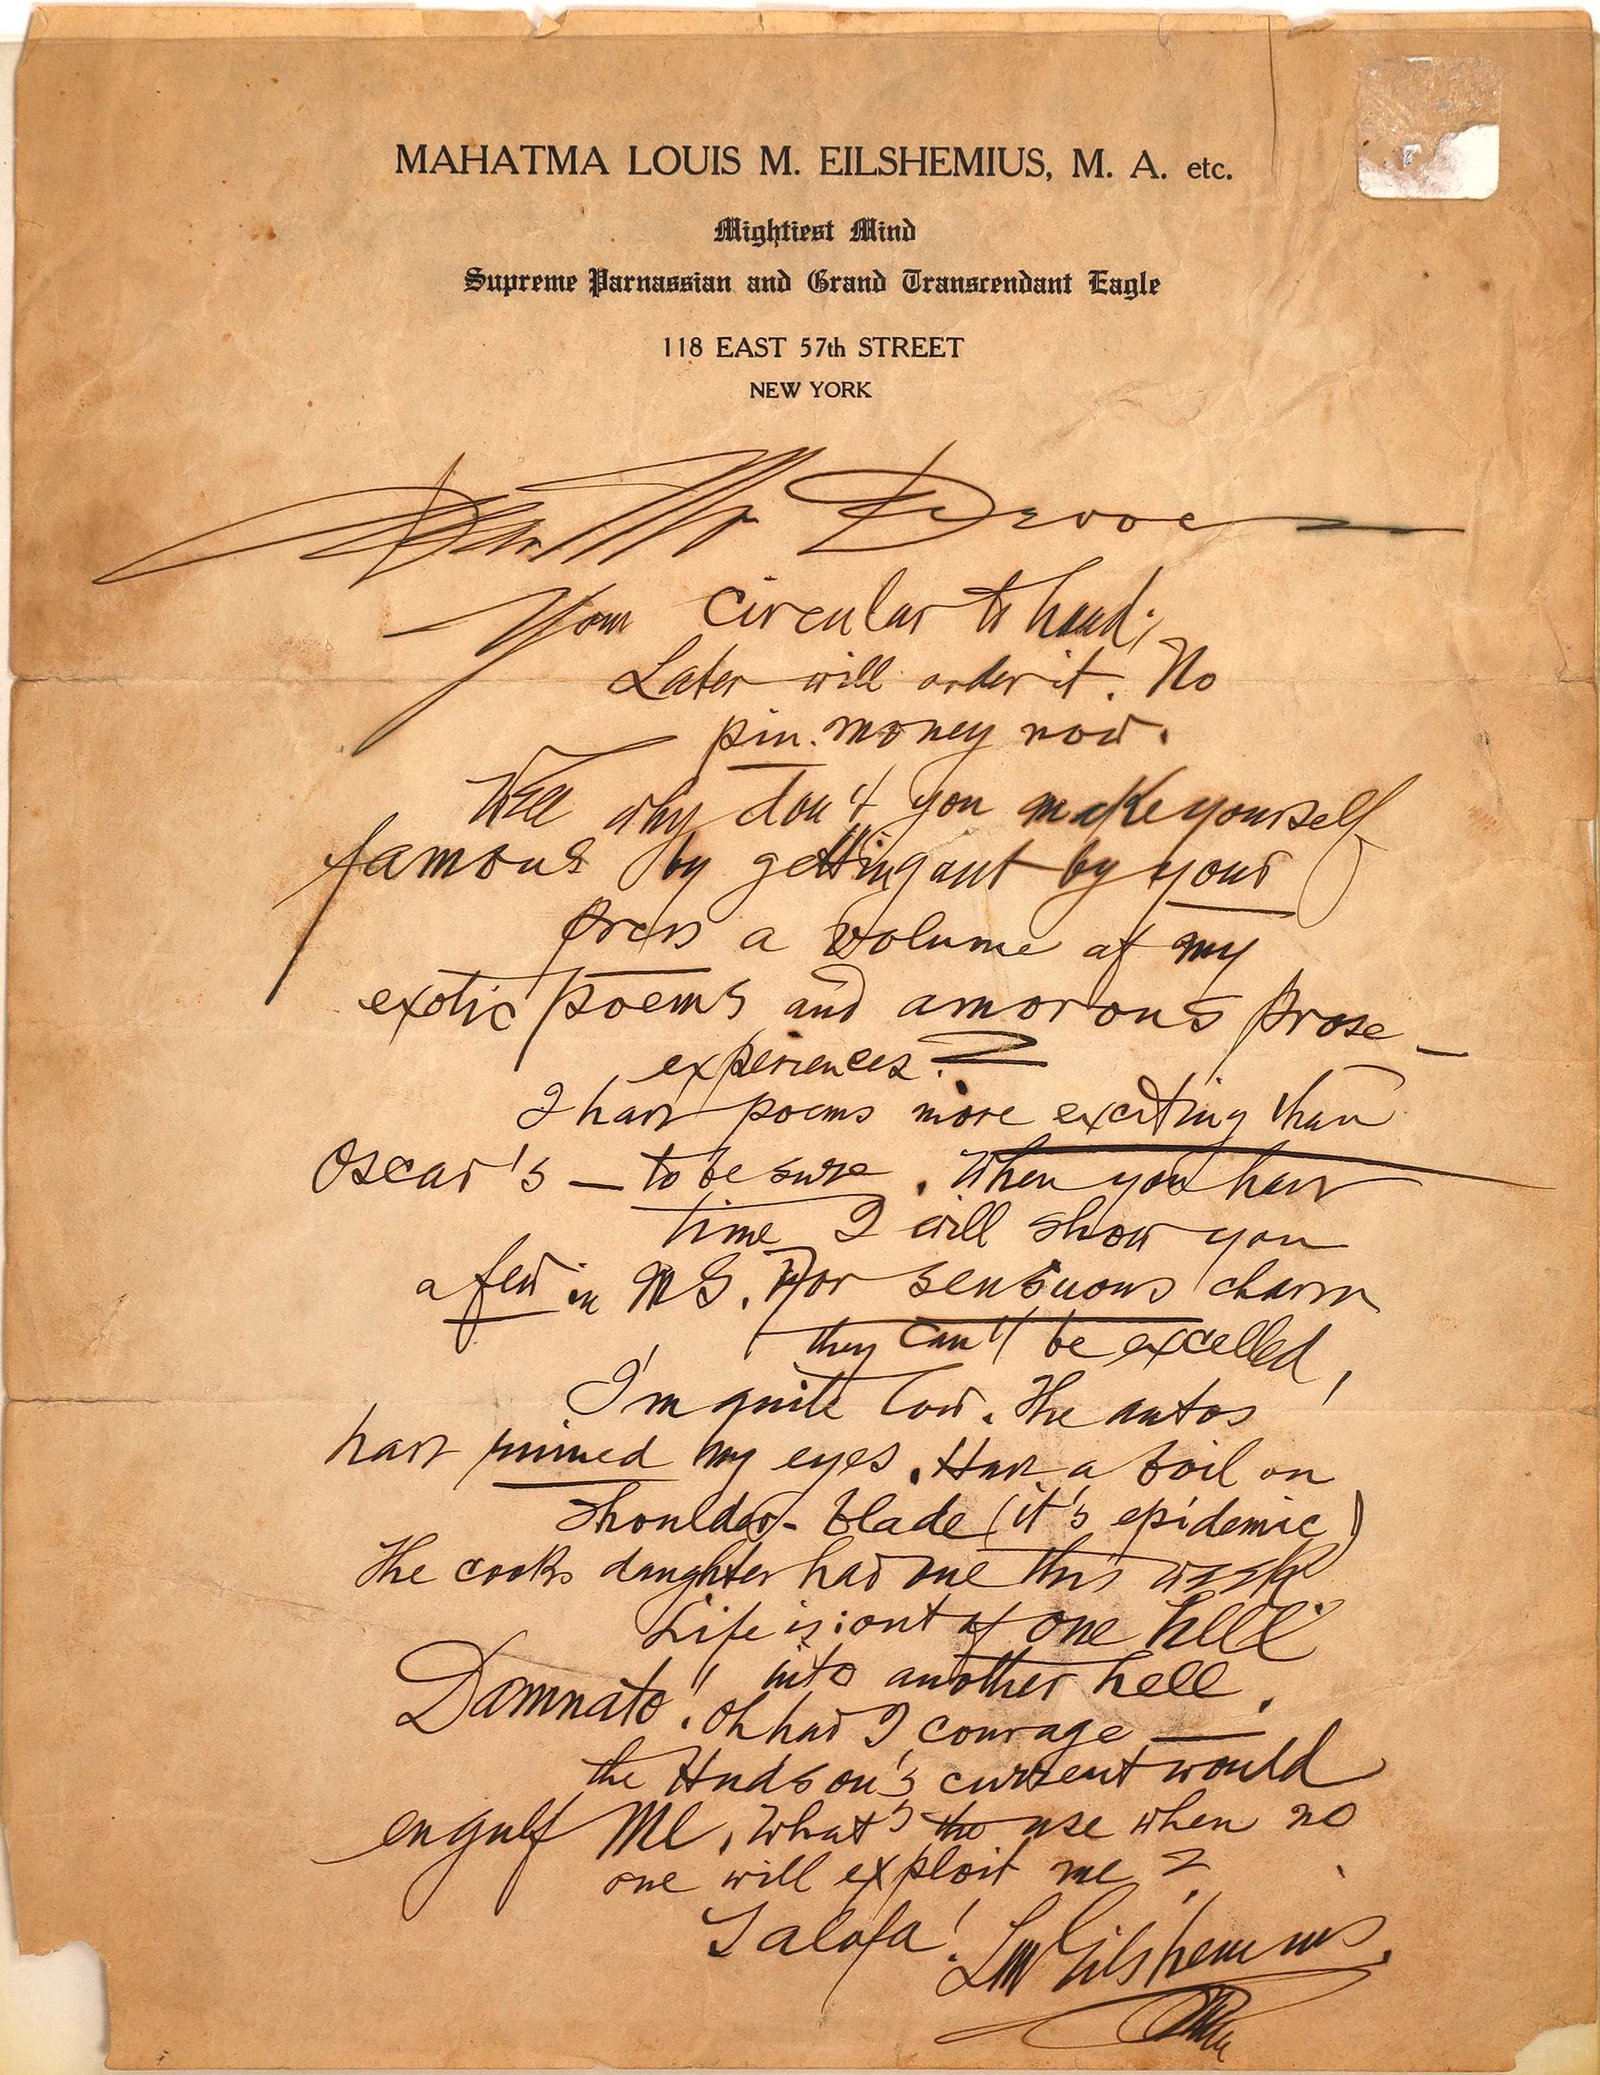 MAHATMA LOUIS M. EILSHEMIUS, M. A. etc.
Mightiest Mind
Supreme Parnassian and Grand Transcendant Eagle
118 EAST 57th STREET
NEW YORK
Dear Mr Devoe
Your circular to hand;
Later will order it. No
pin-money now.
Well why don't you make yourself
famous by getting out by your
press a volume of my
exotic poems and amorous prose-
experiences?
I have poems more exciting than
Oscar's — to be sure. When you have
time I will show you
a few in MS. For sensuous charm
they can't be excelled!
I'm quite low. The autos
have ruined my eyes. Have a boil on
shoulder-blade (it's epidemic)
The cooks daughter had one this week
Life is: out of one hell
into another hell.
Damnato! Oh had I courage —
the Hudson's current would
engulf me. What's the use when no
one will exploit me?
Talofa! LM Eilshemius.